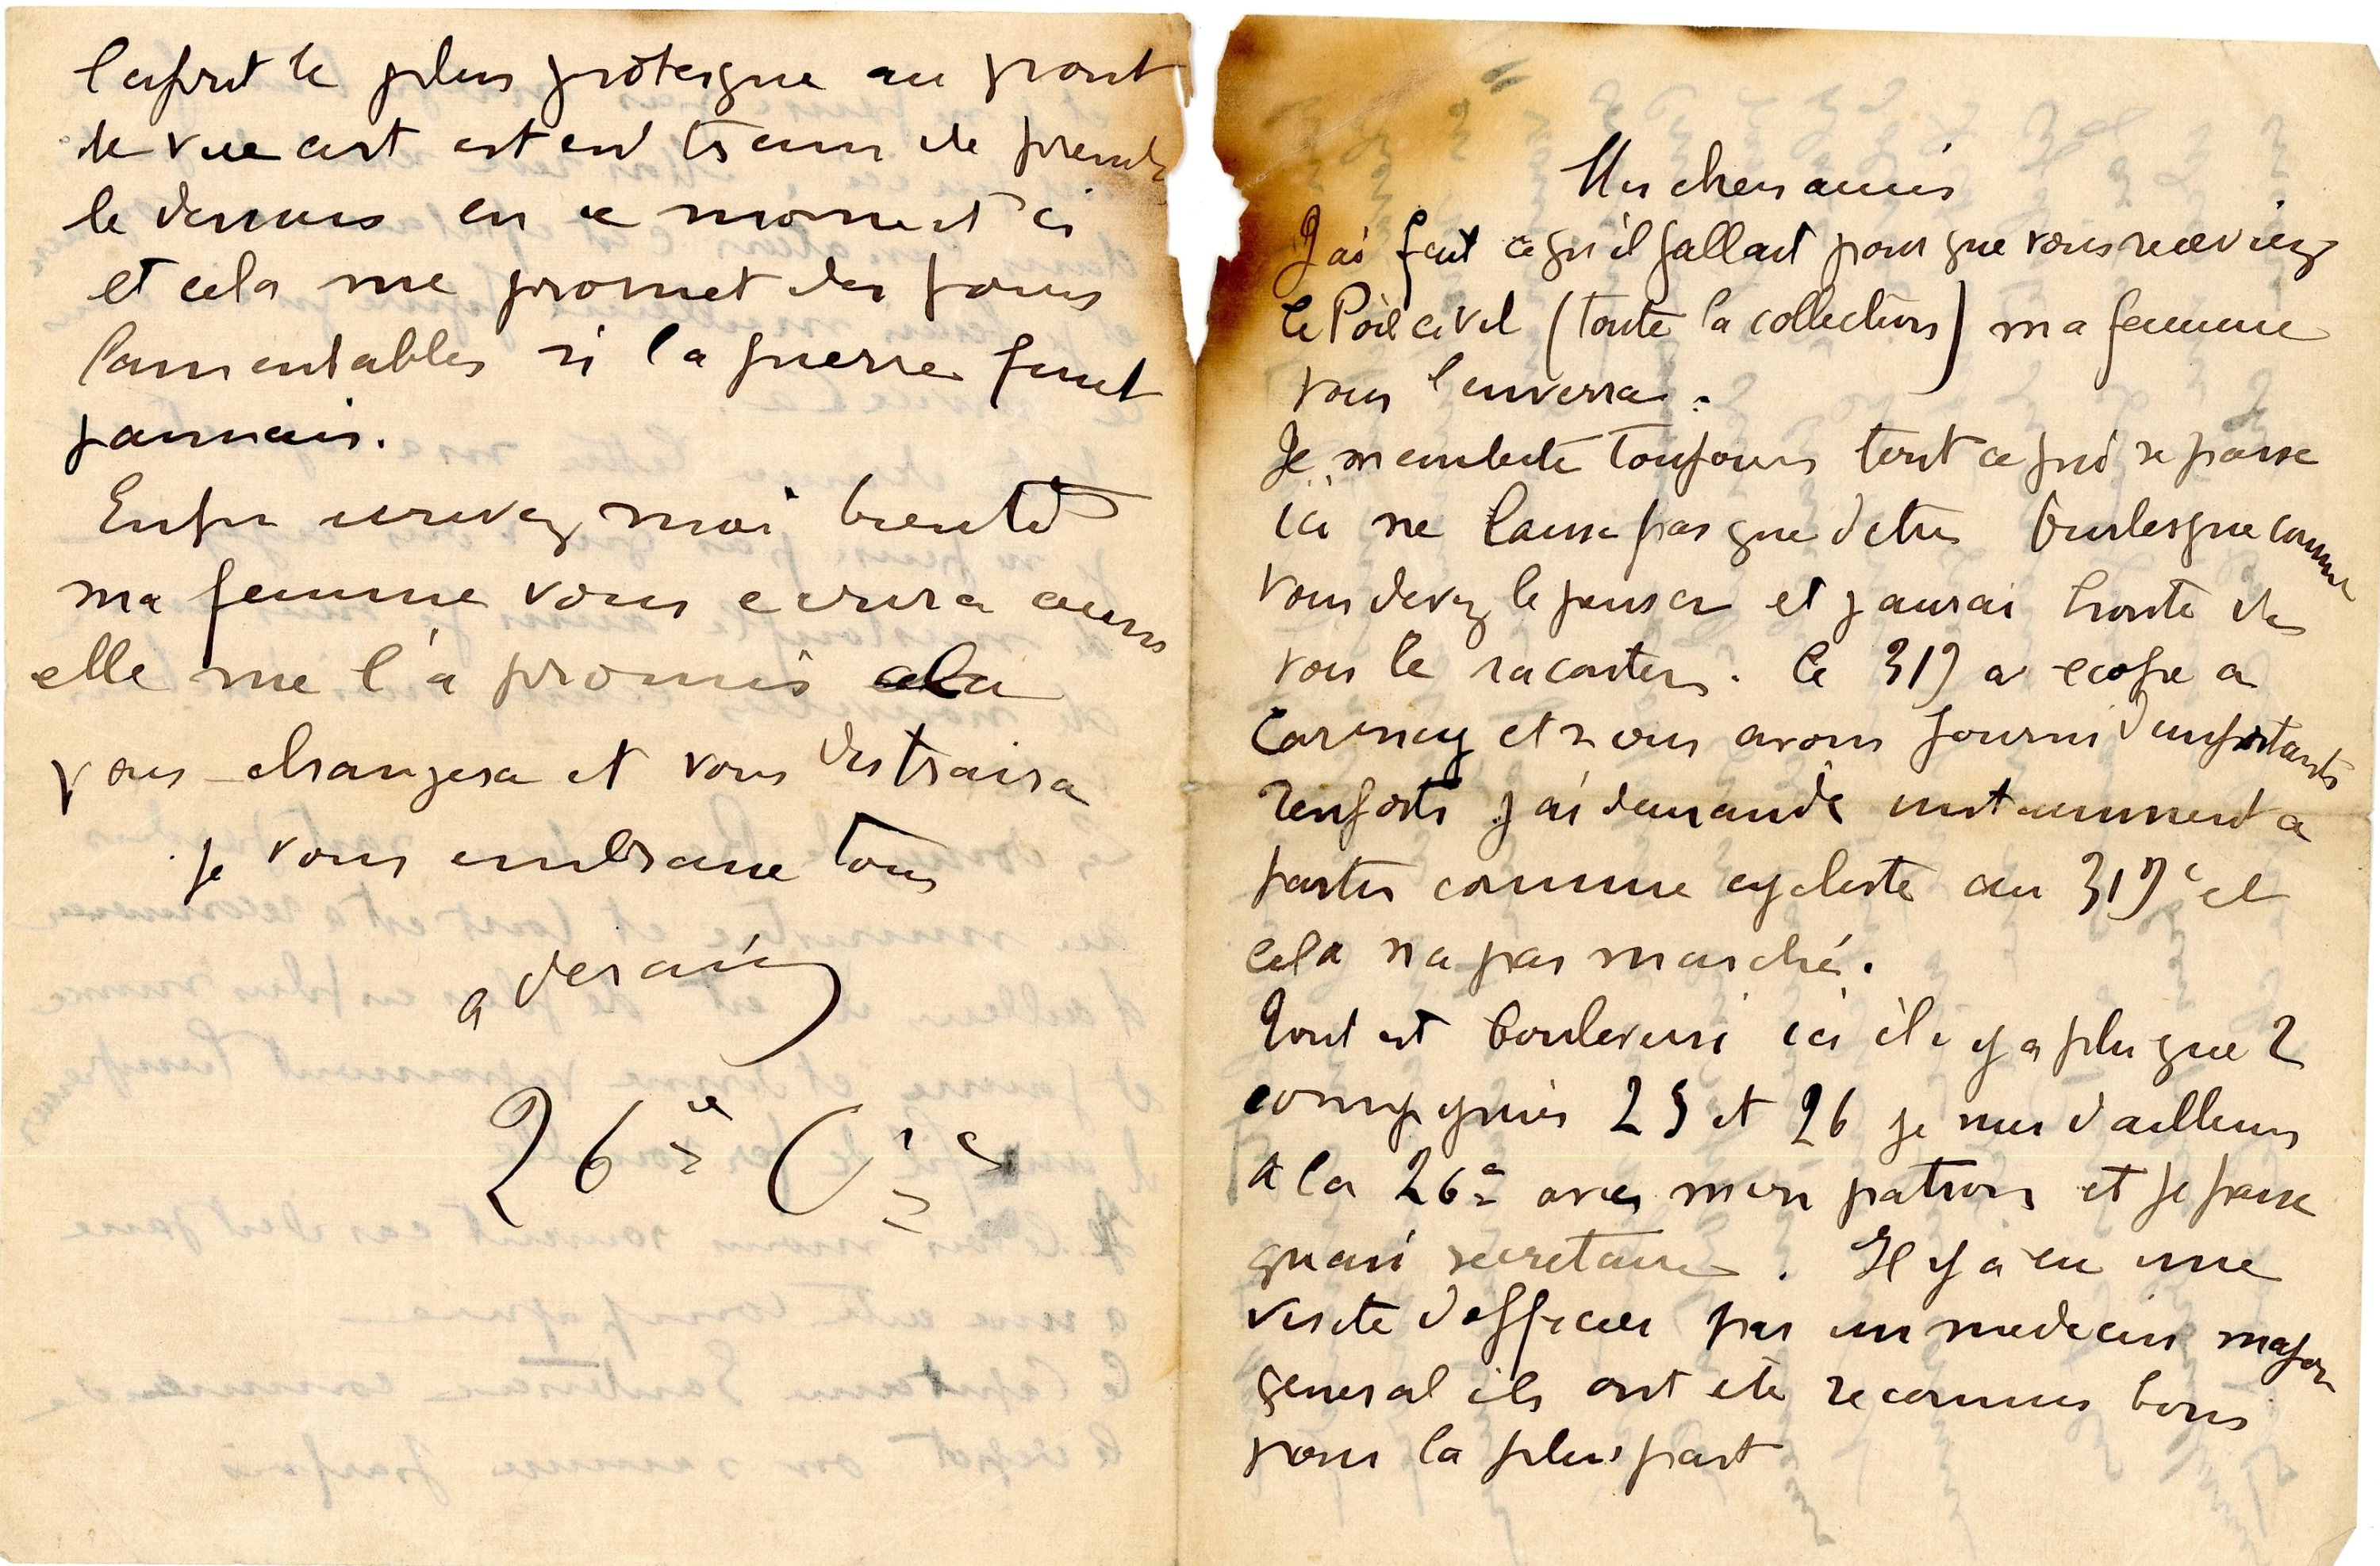 Mes chers amis
J'ai fait ce qu'il fallait pour que vous receviez
le Poil civil (toute la collection) ma femme
vous l'enverra.
Je m'embete toujours tout ce qui se passe
ici ne laisse pas que d'etre burlesque comme
vous devez le penser et j'aurai honte de
vous le raconter. le 319 a ecope a
Carency et nous avons fourni d'importants
renforts j'ai demandé instamment a
partir comme cycliste au 319e et
cela n'a pas marché.
Tout est bouleversé ici il y a plus que 2
compagnies 25 et 26 je suis d'ailleurs
a la 26e avec mon patron et je passe
quasi secretaire. Il y a eu une
visite d'officier par un medecin major
general ils ont été reconnus bons
pour la plus part
l'esprit le plus grotesque au point
de vue art est en train de prendre
le dessus en ce moment ci
et cela me promet des jours
lamentables si la guerre finit
jamais.
Enfin ecrivez moi bientôt
ma femme vous ecrira aussi
elle me l'a promis cela
vous changera et vous distraira
je vous embrasse tous
a derain
26e Cie